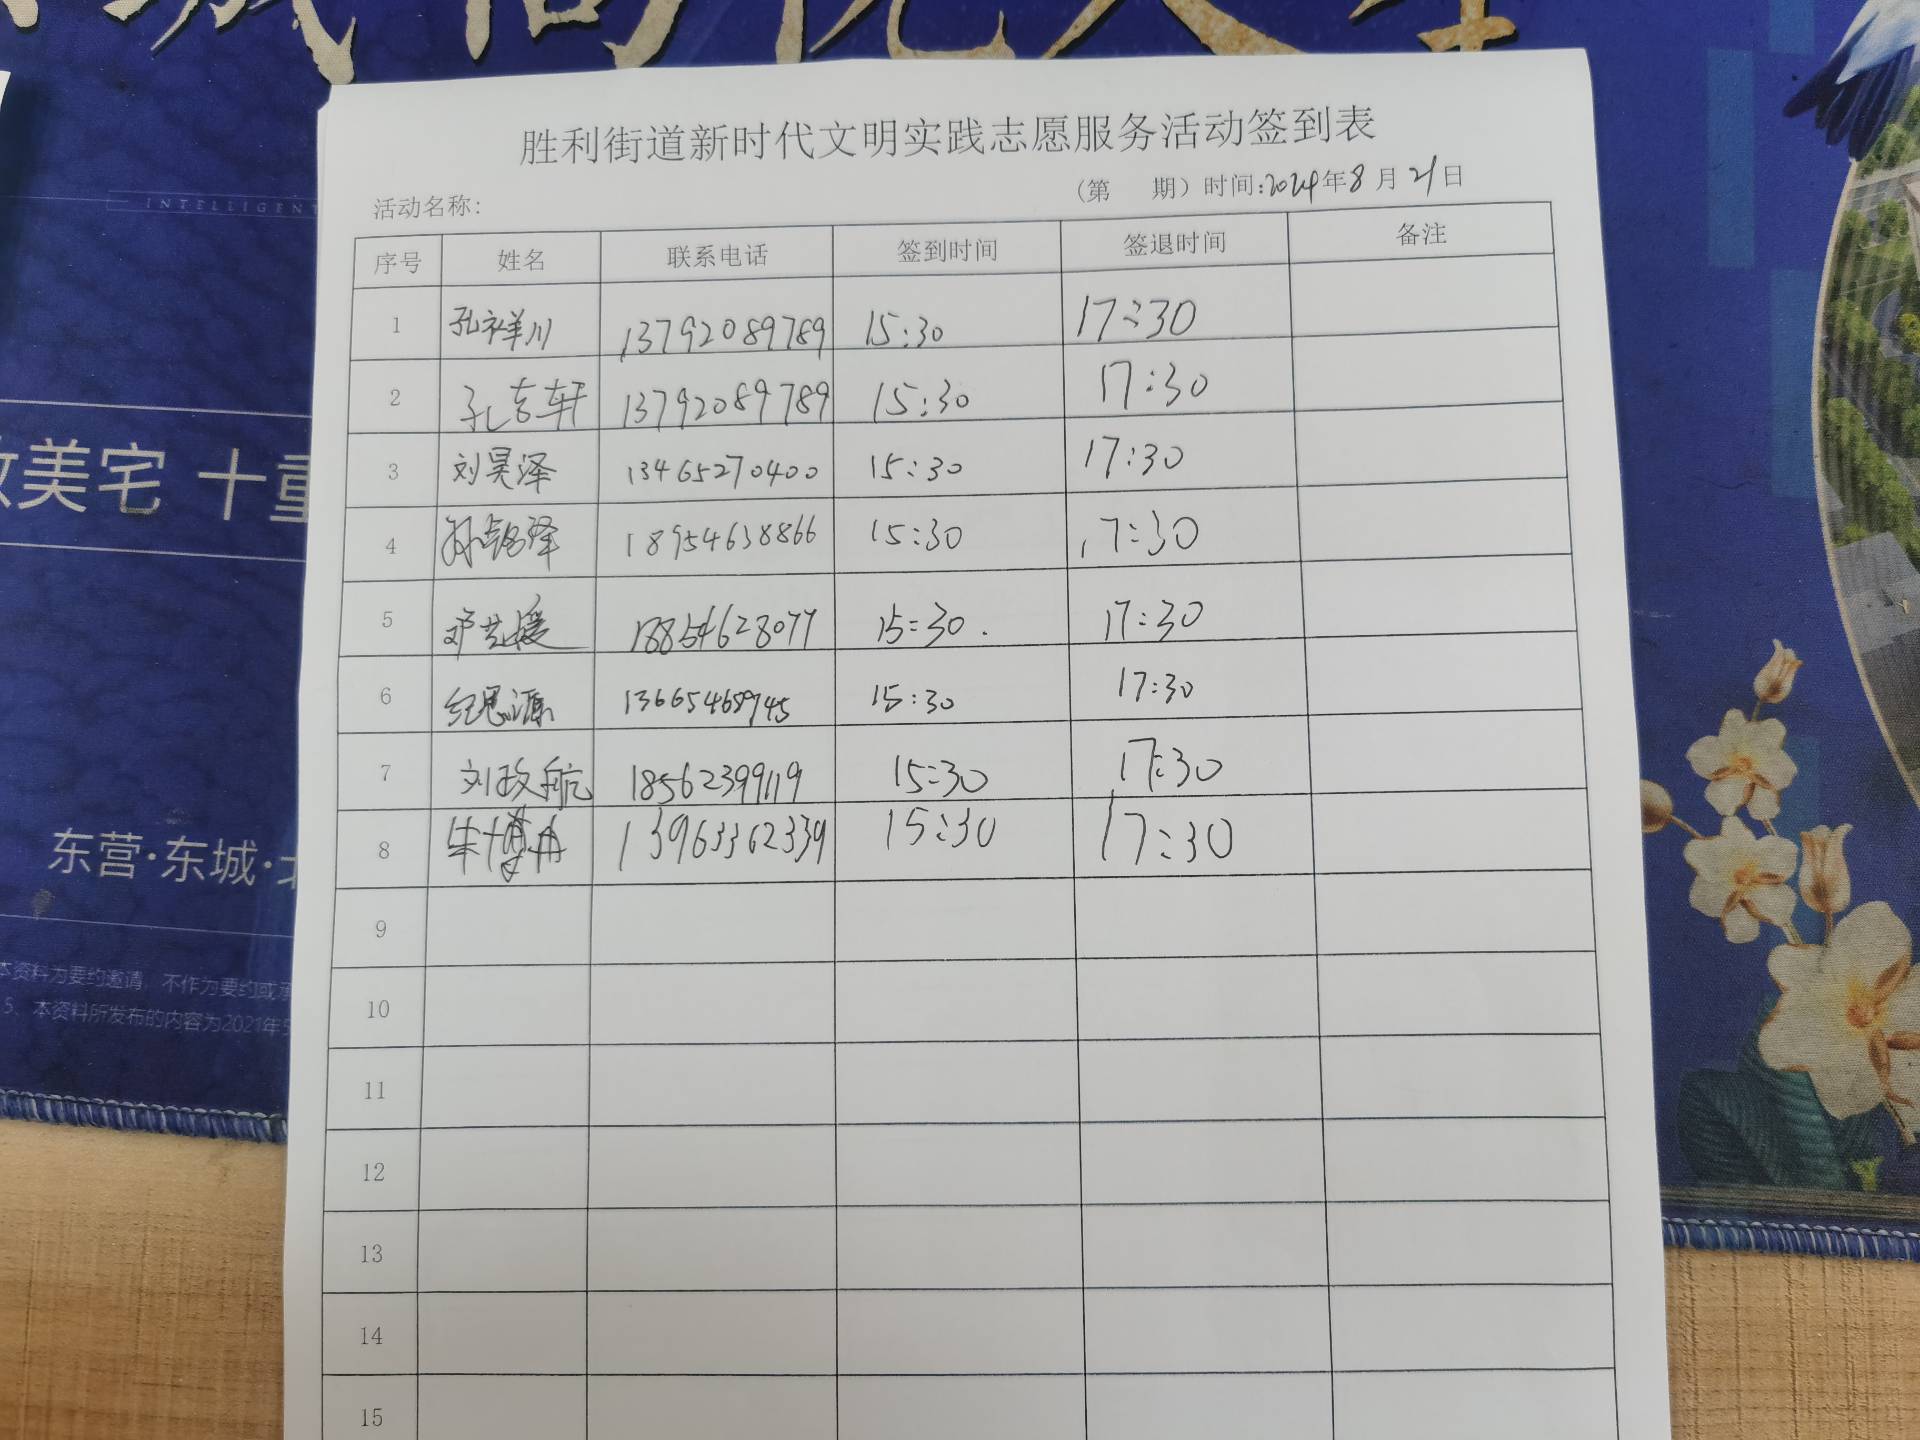 INTELLIGENT
美宅 十重
东营·东城·北
本资料为要约邀请,不作为要约或承
5、本资料所发布的内容为2021年5
胜利街道新时代文明实践志愿服务活动签到表
活动名称: (第 期) 时间:2024年8月21日
序号 姓名 联系电话 签到时间 签退时间 备注
1 孔祥川 13792089789 15:30 17:30
2 孔吉轩 13792089789 15:30 17:30
3 刘昊泽 13465270400 15:30 17:30
4 孙铭泽 18954638866 15:30 17:30
5 邓艺媛 18854628077 15:30 17:30
6 纪思源 13665468745 15:30 17:30
7 刘政航 18562399119 15:30 17:30
8 牛博冉 13963362339 15:30 17:30
9
10
11
12
13
14
15